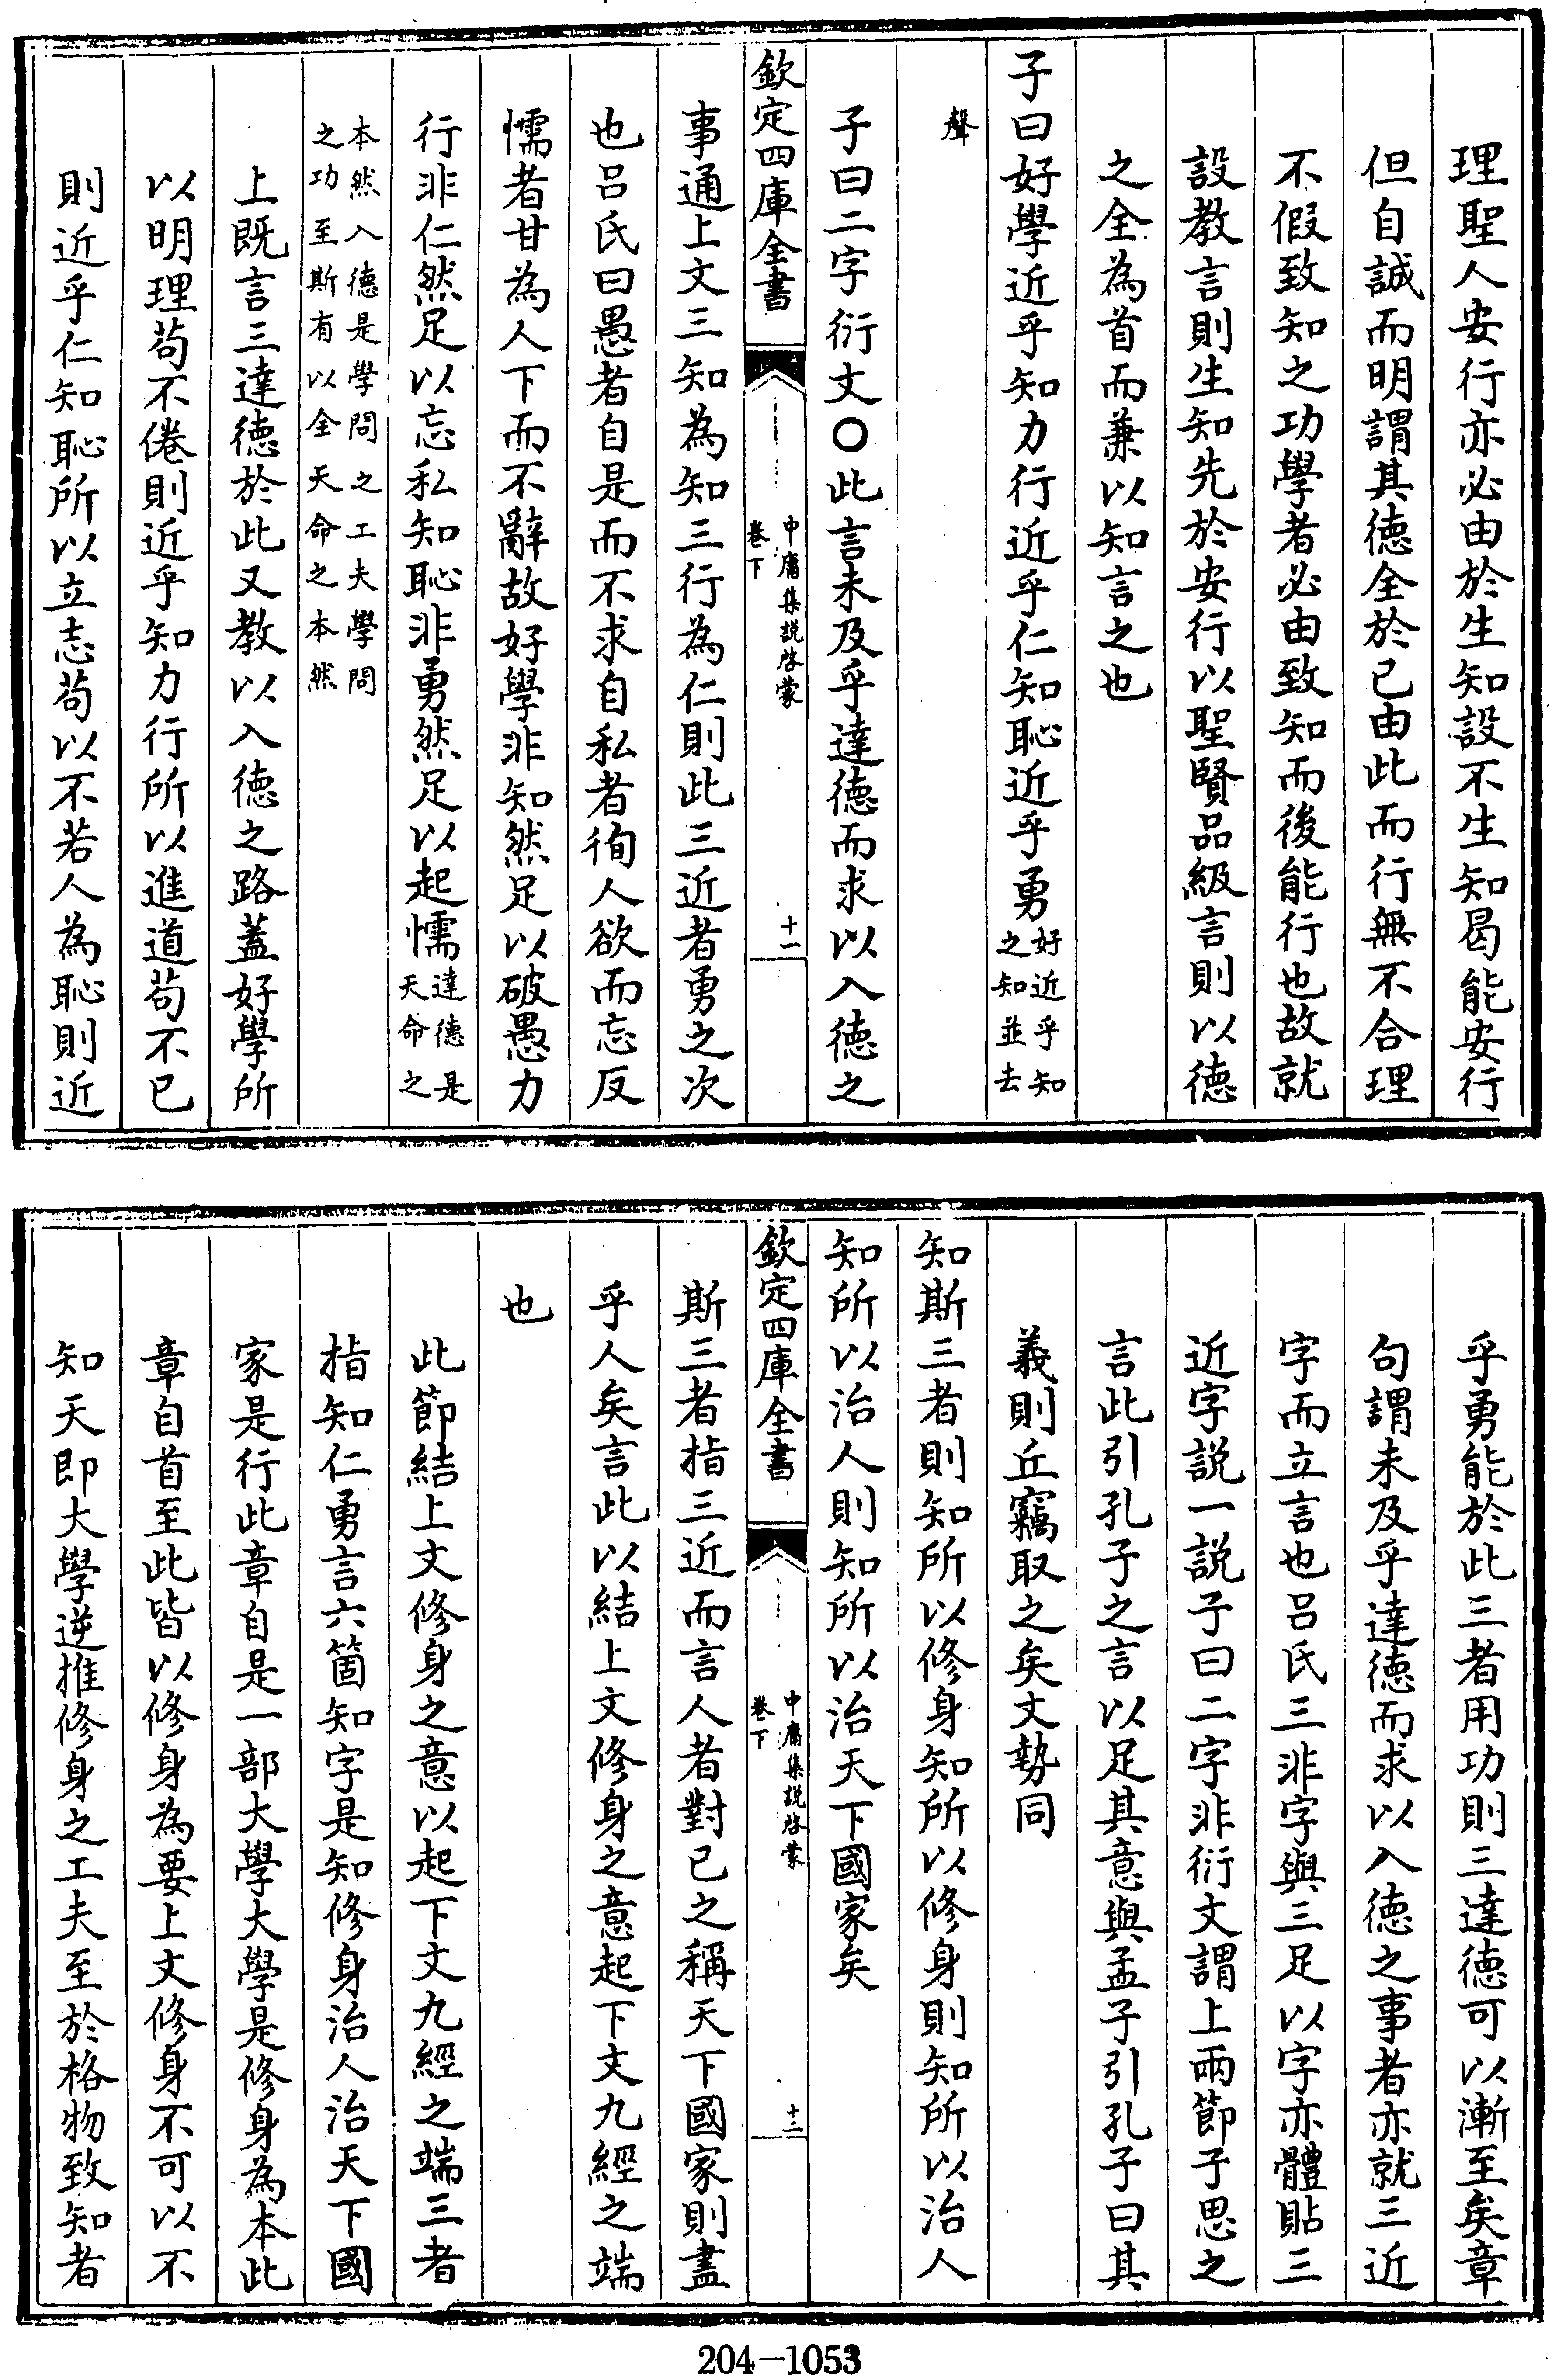 理聖人安行亦必由於生知設不生知曷能安行
但自誠而明謂其德全於已由此而行無不合理
不假致知之功學者必由致知而後能行也故就
設教言則生知先於安行以聖賢品級言則以德
之全為首而兼以知言之也
子曰好學近乎知力行近乎仁知恥近乎勇好近乎知之知並去
聲
子曰二字衍文○此言未及乎達德而求以入德之
欽定四庫全書
中庸集説啓蒙
卷下
十一
事通上文三知為知三行為仁則此三近者勇之次
也呂氏曰愚者自是而不求自私者徇人欲而忘反
懦者甘為人下而不辭故好學非知然足以破愚力
行非仁然足以忘私知恥非勇然足以起懦達德是天命之
本然入德是學問之工夫學問之功至斯有以全天命之本然
上既言三達德於此又教以入德之路蓋好學所
以明理苟不倦則近乎知力行所以進道苟不已
則近乎仁知恥所以立志苟以不若人為恥則近
乎勇能於此三者用功則三達德可以漸至矣章
句謂未及乎達德而求以入德之事者亦就三近
字而立言也呂氏三非字與三足以字亦體貼三
近字説一説子曰二字非衍文謂上兩節子思之
言此引孔子之言以足其意與孟子引孔子曰其
義則丘竊取之矣文勢同
知斯三者則知所以修身知所以修身則知所以治人
知所以治人則知所以治天下國家矣
欽定四庫全書
中庸集説啓蒙
卷下
十二
斯三者指三近而言人者對已之稱天下國家則盡
乎人矣言此以結上文修身之意起下文九經之端
也
此節結上文修身之意以起下文九經之端三者
指知仁勇言六箇知字是知修身治人治天下國
家是行此章自是一部大學大學是修身為本此
章自首至此皆以修身為要上文修身不可以不
知天即大學逆推修身之工夫至於格物致知者
204-1053